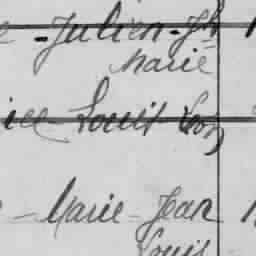 e - Julien - Jh
Marie
ice Louis Léon
e - Marie - Jean
Louis